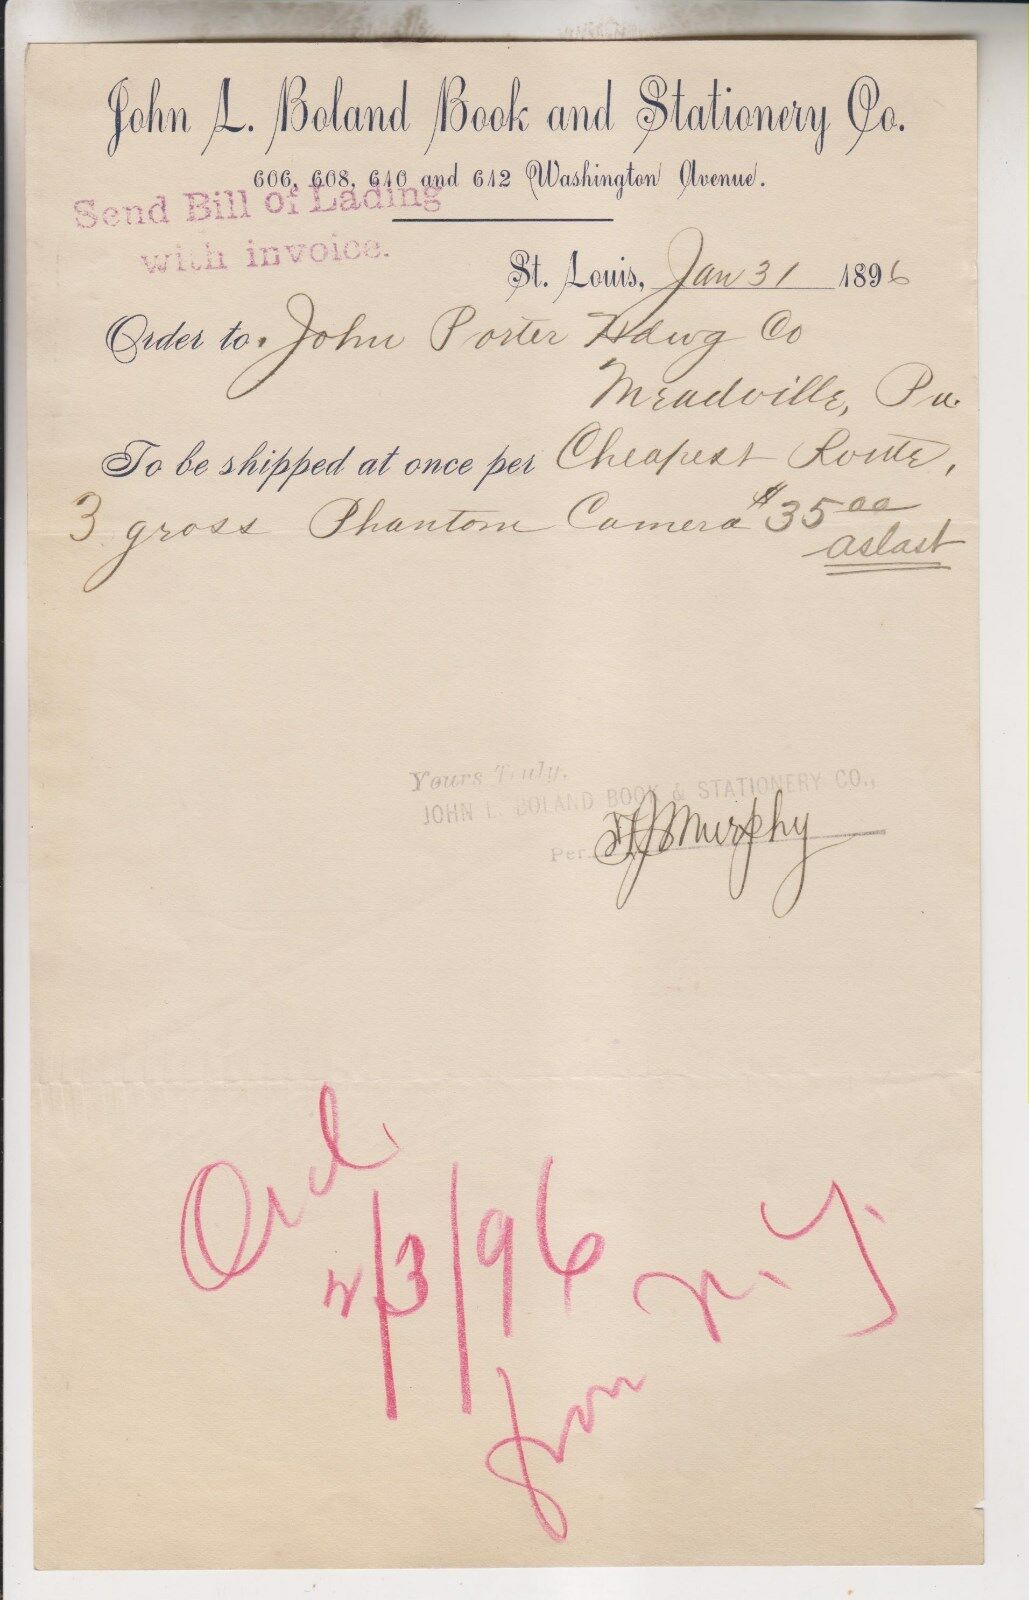 John L. Boland Book and Stationery Co.
606, 608, 610 and 612 Washington Avenue.
Send Bill of Lading
with invoice.
St. Louis, Jan 31 1896
Order to. John Porter Hdwg Co
Meadville, Pa.
To be shipped at once per Cheapest Route,
3 gross Phantom Camera $35.00
as last
Yours Truly,
JOHN L. BOLAND BOOK & STATIONERY CO.,
Per. Murphy
Ord.
2/3/96
from N.Y.